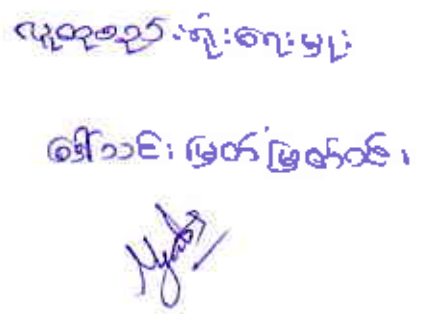 လူထုစည်းရုံးရေးမှုး
ဒေါ်သင်းမြတ်မြတ်ဝင်း